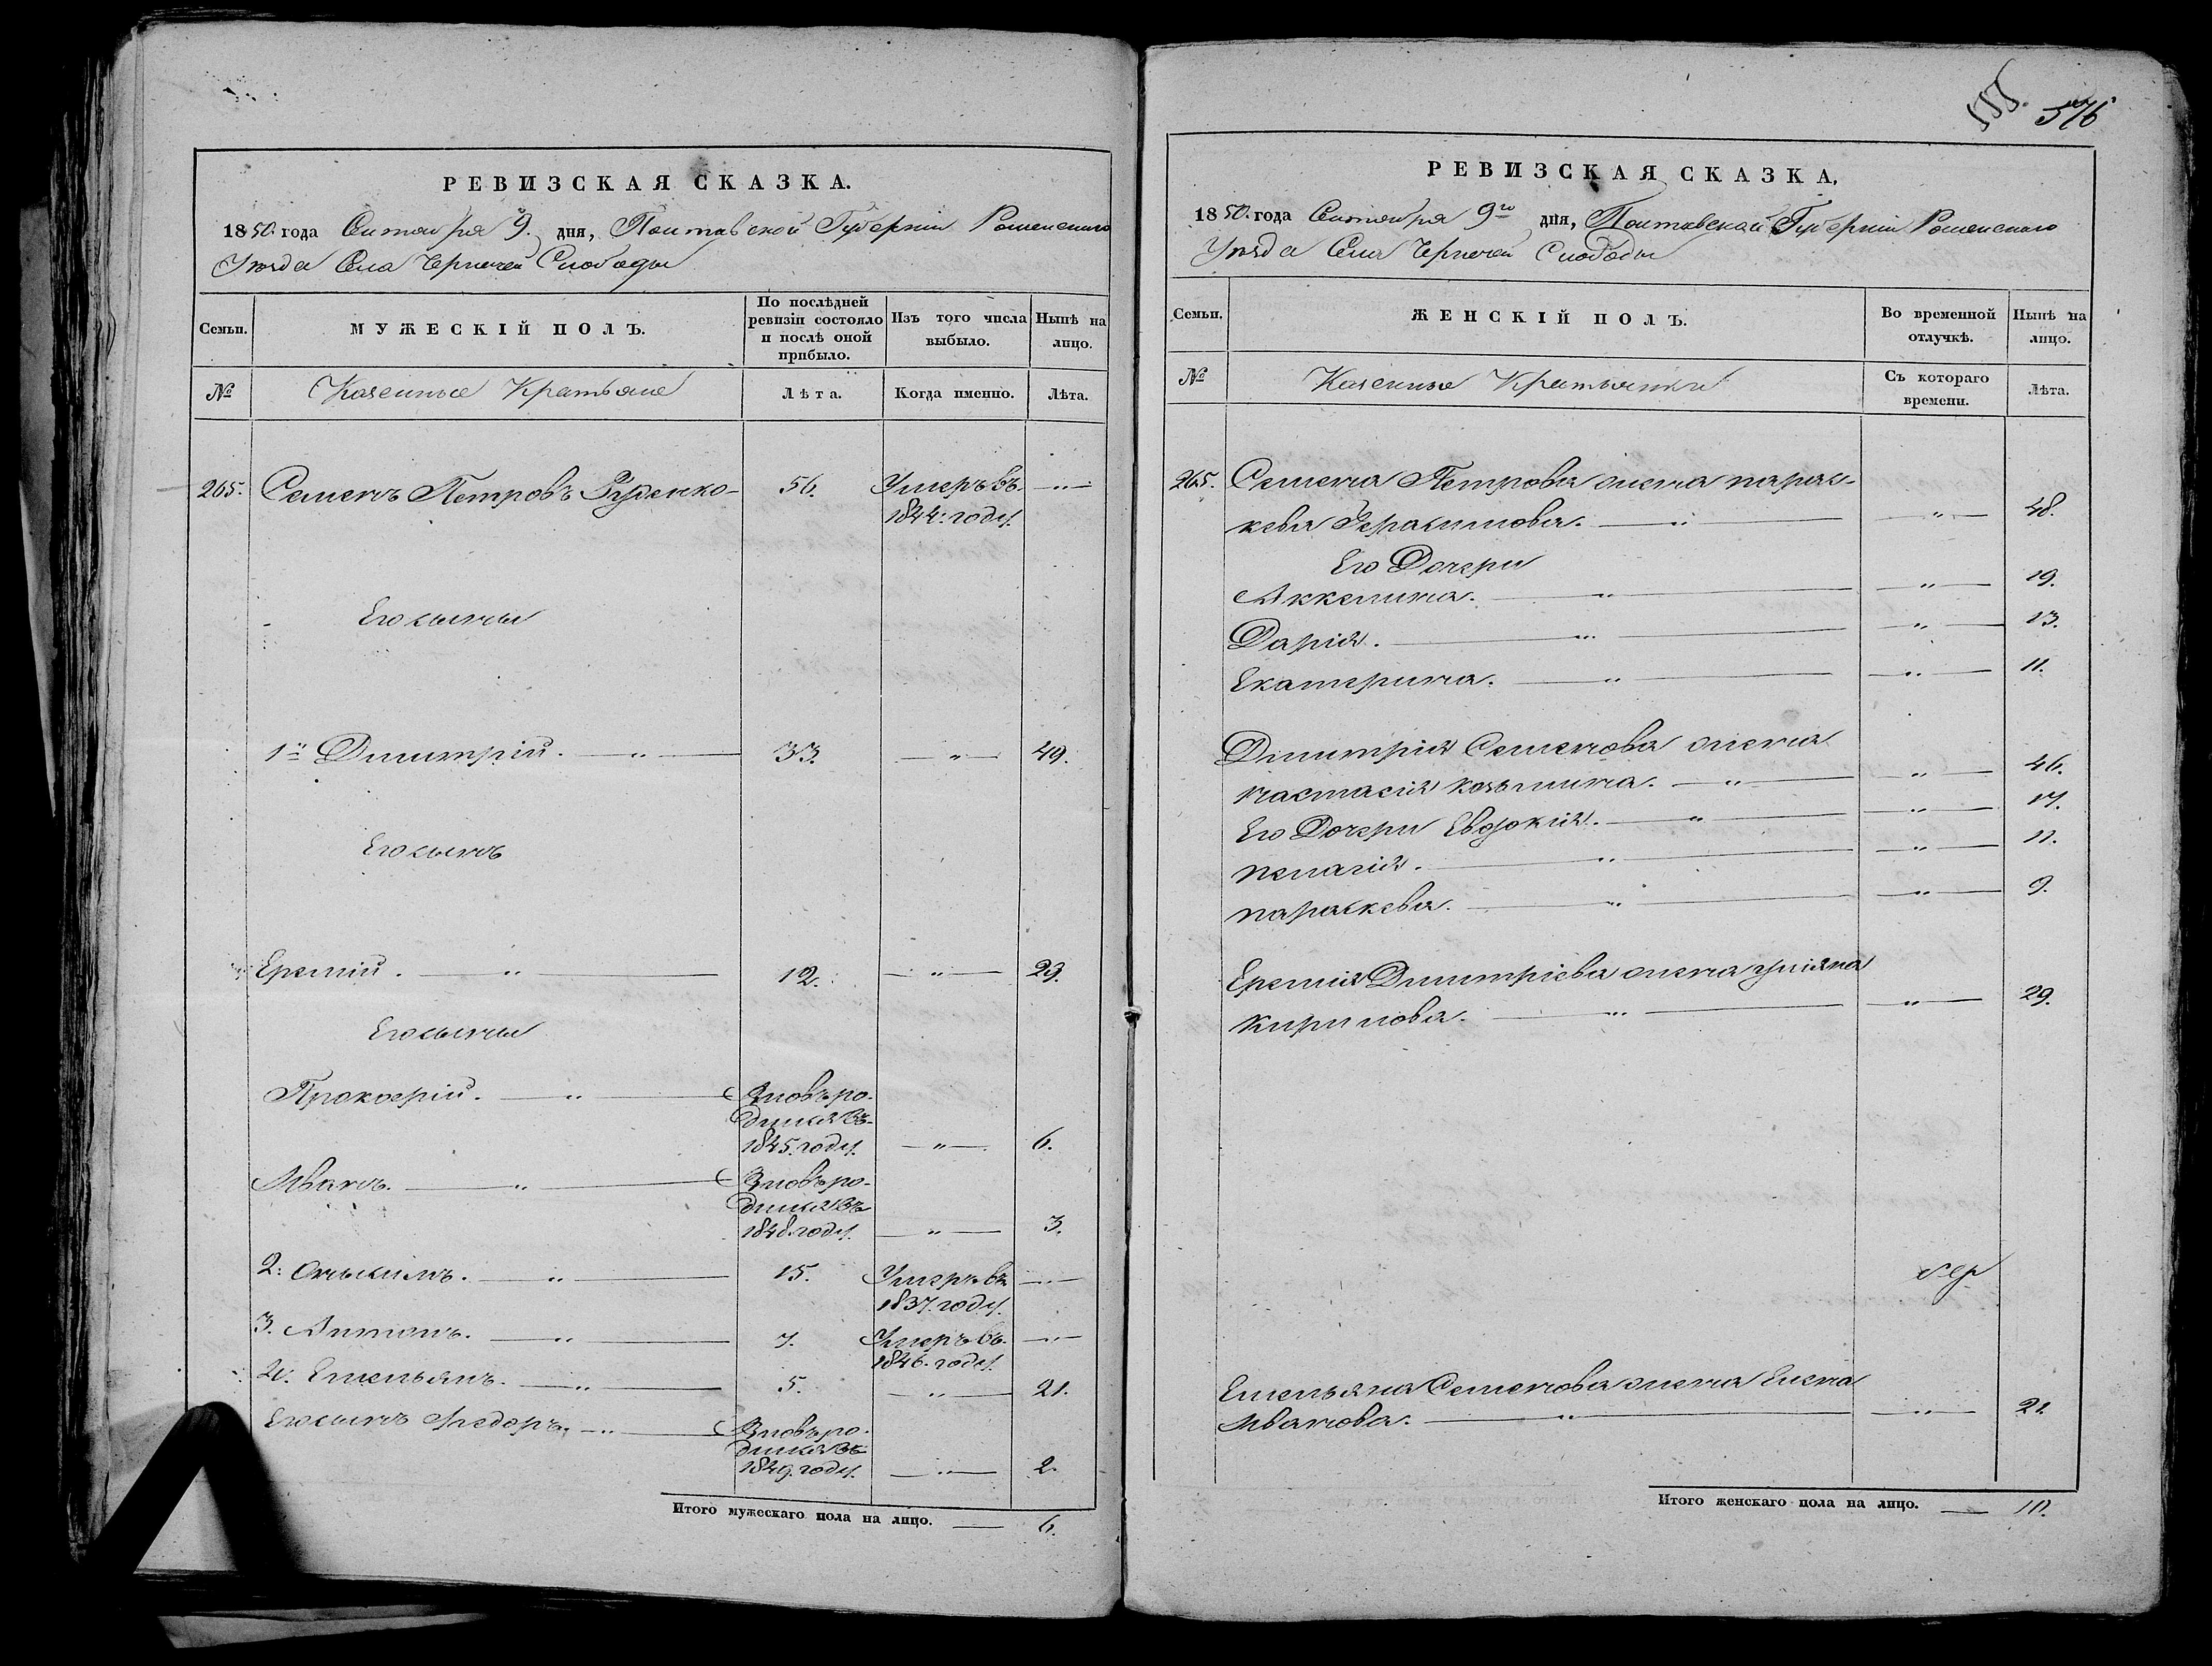 РЕВИЗСКАЯ СКАЗКА.
1850. года Сентября 9. дня, Полтавской Губерніи Роменскаго
Уѣзда Села Чернечей Слободы
Семьи.
МУЖЕСКІЙ ПОЛЪ.
По послѣдней
ревизіи состояло
и послѣ оной
прибыло.
Изъ того числа
выбыло.
Нынѣ на
лицо.
№
Казенные Крестьяне
Лѣта.
Когда именно.
Лѣта.
265. Семенъ Петровъ Руденко 56. Умеръ въ
1844. году.
Его сыны
1й Димитрій. 33. 49.
Его сынъ
Еремій. 12. 29.
Его сыны
Прокофій. Вновь ро-
дился въ
1845. году. 6.
Иванъ. Вновь ро-
дился въ
1848. году. 3.
2. Онисимъ. 15. Умеръ въ
1837. году.
3. Антонъ. 7. Умеръ въ
1846. году.
4. Емельянъ. 5. 21.
Его сынъ Федоръ. Вновь ро-
дился въ
1849. году. 2.
Итого мужескаго пола на лицо. 6.
576
РЕВИЗСКАЯ СКАЗКА.
1850. года Сентября 9го дня, Полтавской Губерніи Роменскаго
Уѣзда Села Чернечей Слободы
Семьи.
ЖЕНСКІЙ ПОЛЪ.
Во временной
отлучкѣ.
Нынѣ на
лицо.
№
Казенные Крестьянки
Съ котораго
времени.
Лѣта.
265. Семена Петрова жена парас-
кева Герасимова. 48.
Его Дочери
Аккелина. 19.
Дарія. 13.
Екатерина. 11.
Димитрія Семенова жена
настасія козьмина. 46.
Его Дочери Евдокія. 17.
пелагія. 11.
параскева. 9.
Еремія Димитріева жена уліяна
кирилова. 29.
Емельяна Семенова жена Елена
Иванова. 21.
Итого женскаго пола на лицо. 10.